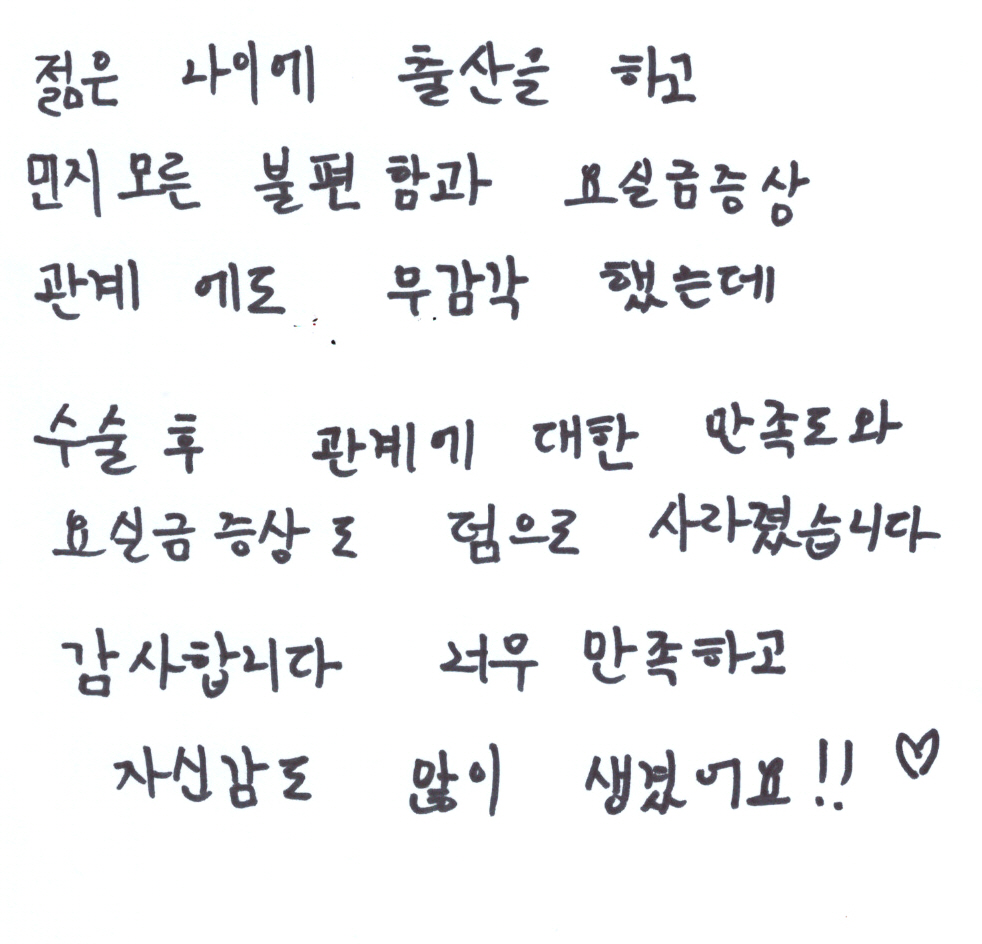 젊은 나이에 출산을 하고
먼지 모른 불편함과 요실금증상
관계 에도 무감각 했는데
수술 후 관계에 대한 만족도와
요실금 증상도 덤으로 사라졌습니다
감사합니다 너무 만족하고
자신감도 많이 생겼어요!! ♡